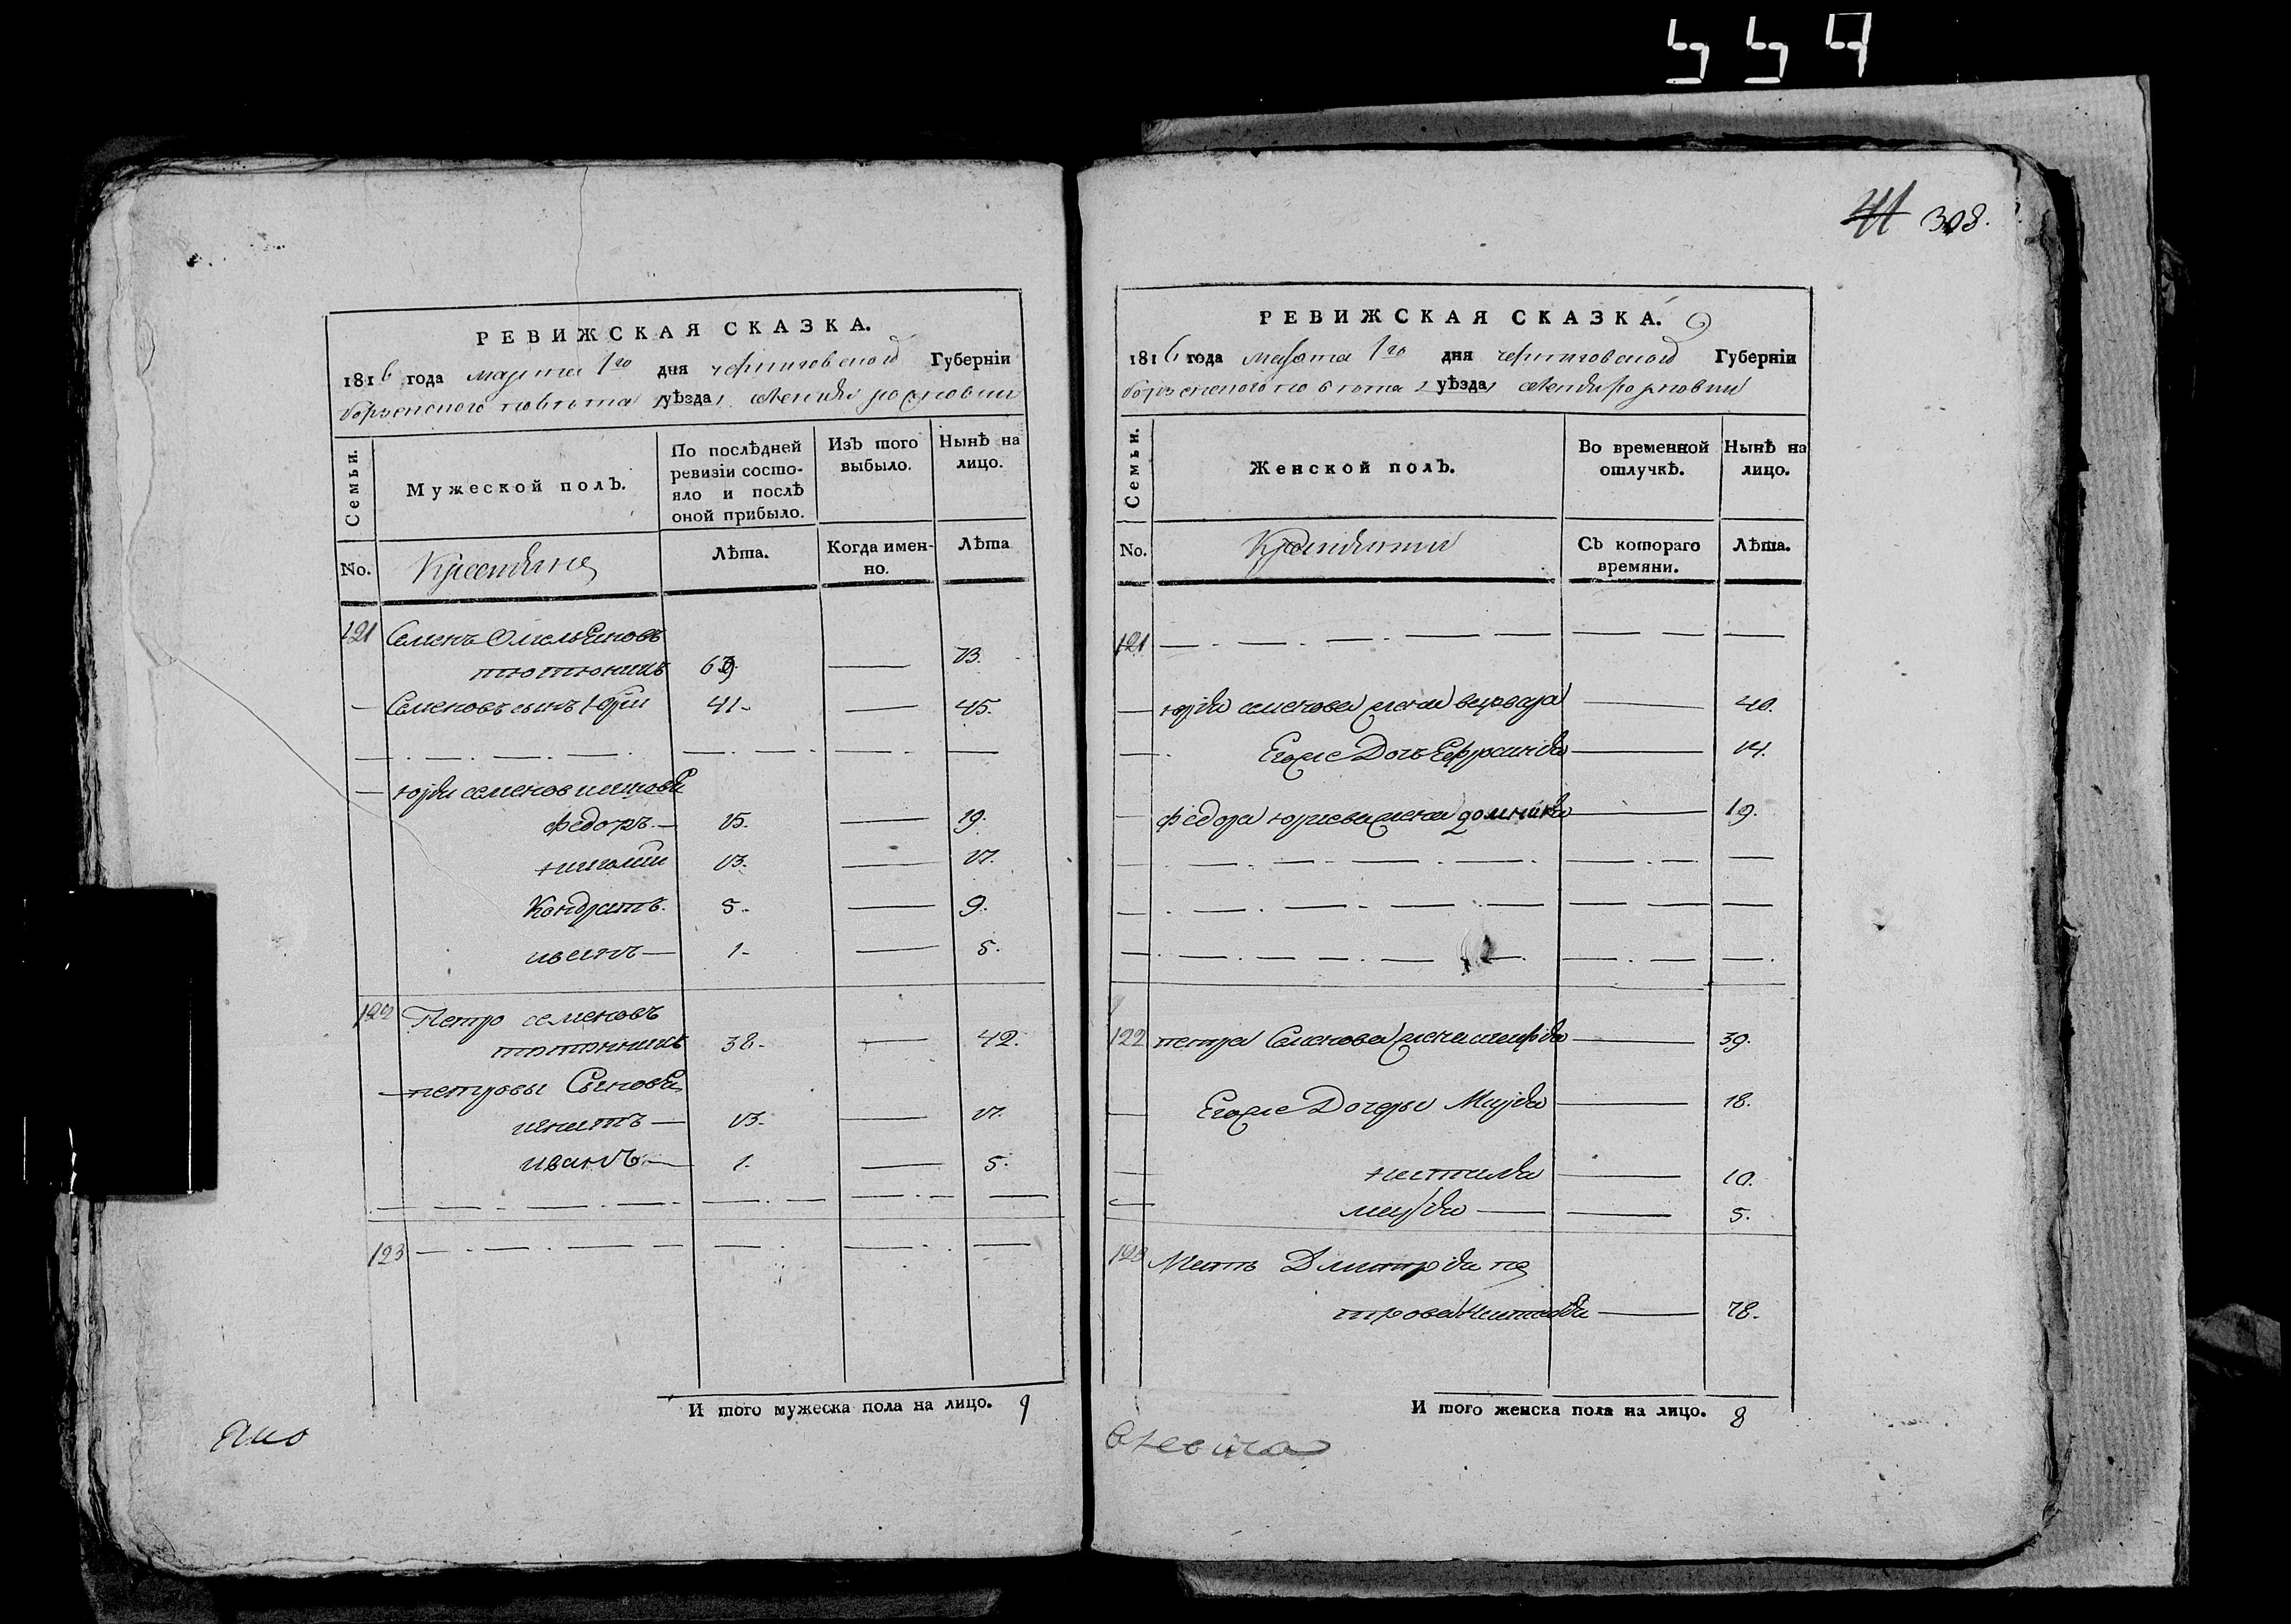 557
41 308.
РЕВИЖСКАЯ СКАЗКА.
1816 года марта 1го дня черниговской Губерніи
борзенского повѣта уѣзда
Семьи.
Мужеской полъ.
По послѣдней ревизіи состояло и послѣ оной прибыло.
Изъ того выбыло.
Нынѣ на лицо.
No.
Крестяне
Лѣта.
Когда именно.
Лѣта
121 Семенъ Омельяновъ
тютюникъ 69. — 73.
— Семеновъ сынъ Юрій 41. — 45.
— юрія семенова синовя
федоръ — 15. — 19.
13. — 17.
Кондратъ. 5. — 9.
иванъ — 1. — 5.
122 Петро семеновъ
тютюникъ 38. — 42.
— петровы Синовя
игнатъ — 13. — 17.
иванъ — 1. — 5.
123
И того мужеска пола на лицо. 9
РЕВИЖСКАЯ СКАЗКА.
1816 года марта 1го дня черниговской Губерніи
борзенского повѣта уѣзда
Семьи.
Женской полъ.
Во временной отлучкѣ.
Нынѣ на лицо.
No.
Крестянки
Съ котораго времяни.
Лѣта.
121
— юрія семенова жена варвара — 40.
— Егоже Дочь Ефросинія — 14.
— федора юриева жена домникія — 19.
122 петра Семенова жена марія — 39.
— Егоже Дочеры Марія — 18.
— настасія — 10.
— марія — 5.
123 Мать Дмитрія пе
трова Настасія — 78.
И того женска пола на лицо. 8